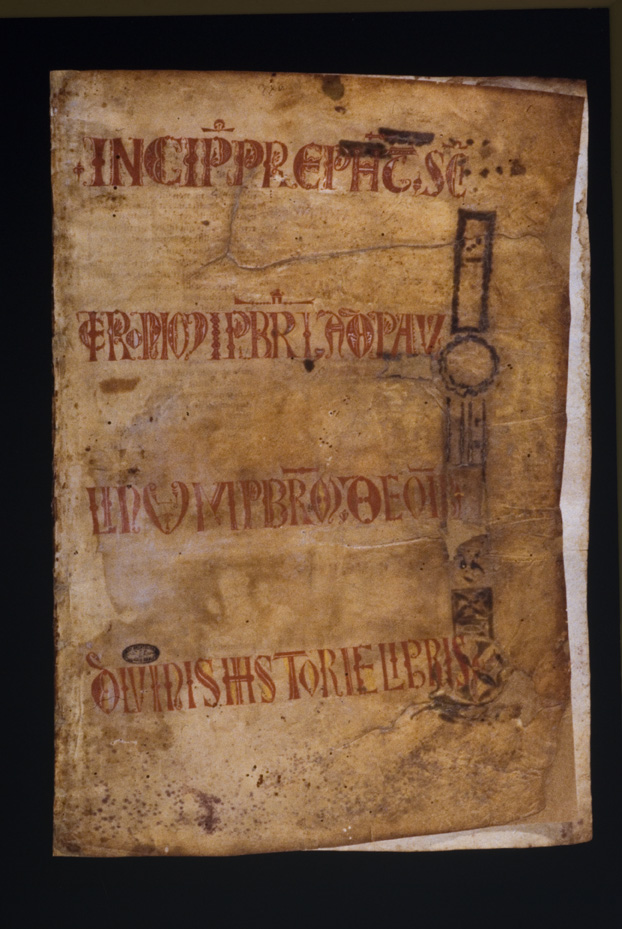 INCIP̄ PREPHĀT̄. SC̄I
IERONIMI P̄BR̄I, AD PAU
LINUM P̄BRM̄, DE OM̄IB;
DIVINIS HISTORIE LIBRIS